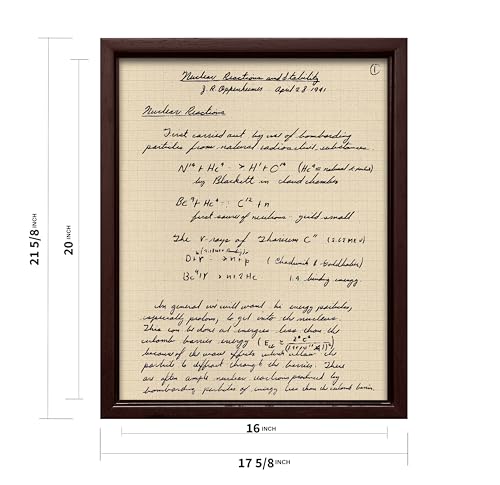 Nuclear Reactions and Stability
J. R. Oppenheimer April 28 1941
1
Nuclear Reactions
First carried out by use of bombarding
particles from natural radioactive substances.
N¹⁴ + He⁴ → H¹ + C¹⁴ (He⁴ = natural α
by Blackett in cloud chamber
Be⁹ + He⁴ C¹² + n
first source of neutrons - yield small
The γ-rays of Thorium C" (2.62 MEV)
D + γ → n + p (Chadwick & Goldhaber)
Be⁹ + γ → n + 2He binding energy
In general we will want the energy particles,
especially protons, to get into the nucleus.
This can be done at energies less than the
coulomb barrier energy
because of the wave effects which allow the
particle to diffract through the barrier. There
are often ample nuclear reactions produced by
bombarding particles of energy less than the coulomb barrier.
21 5/8 INCH
20 INCH
16 INCH
17 5/8 INCH